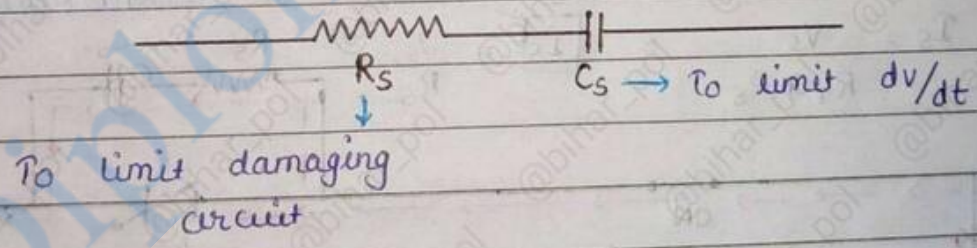 Rs
Cs → To limit dv/dt
↓
To limit damaging
circuit